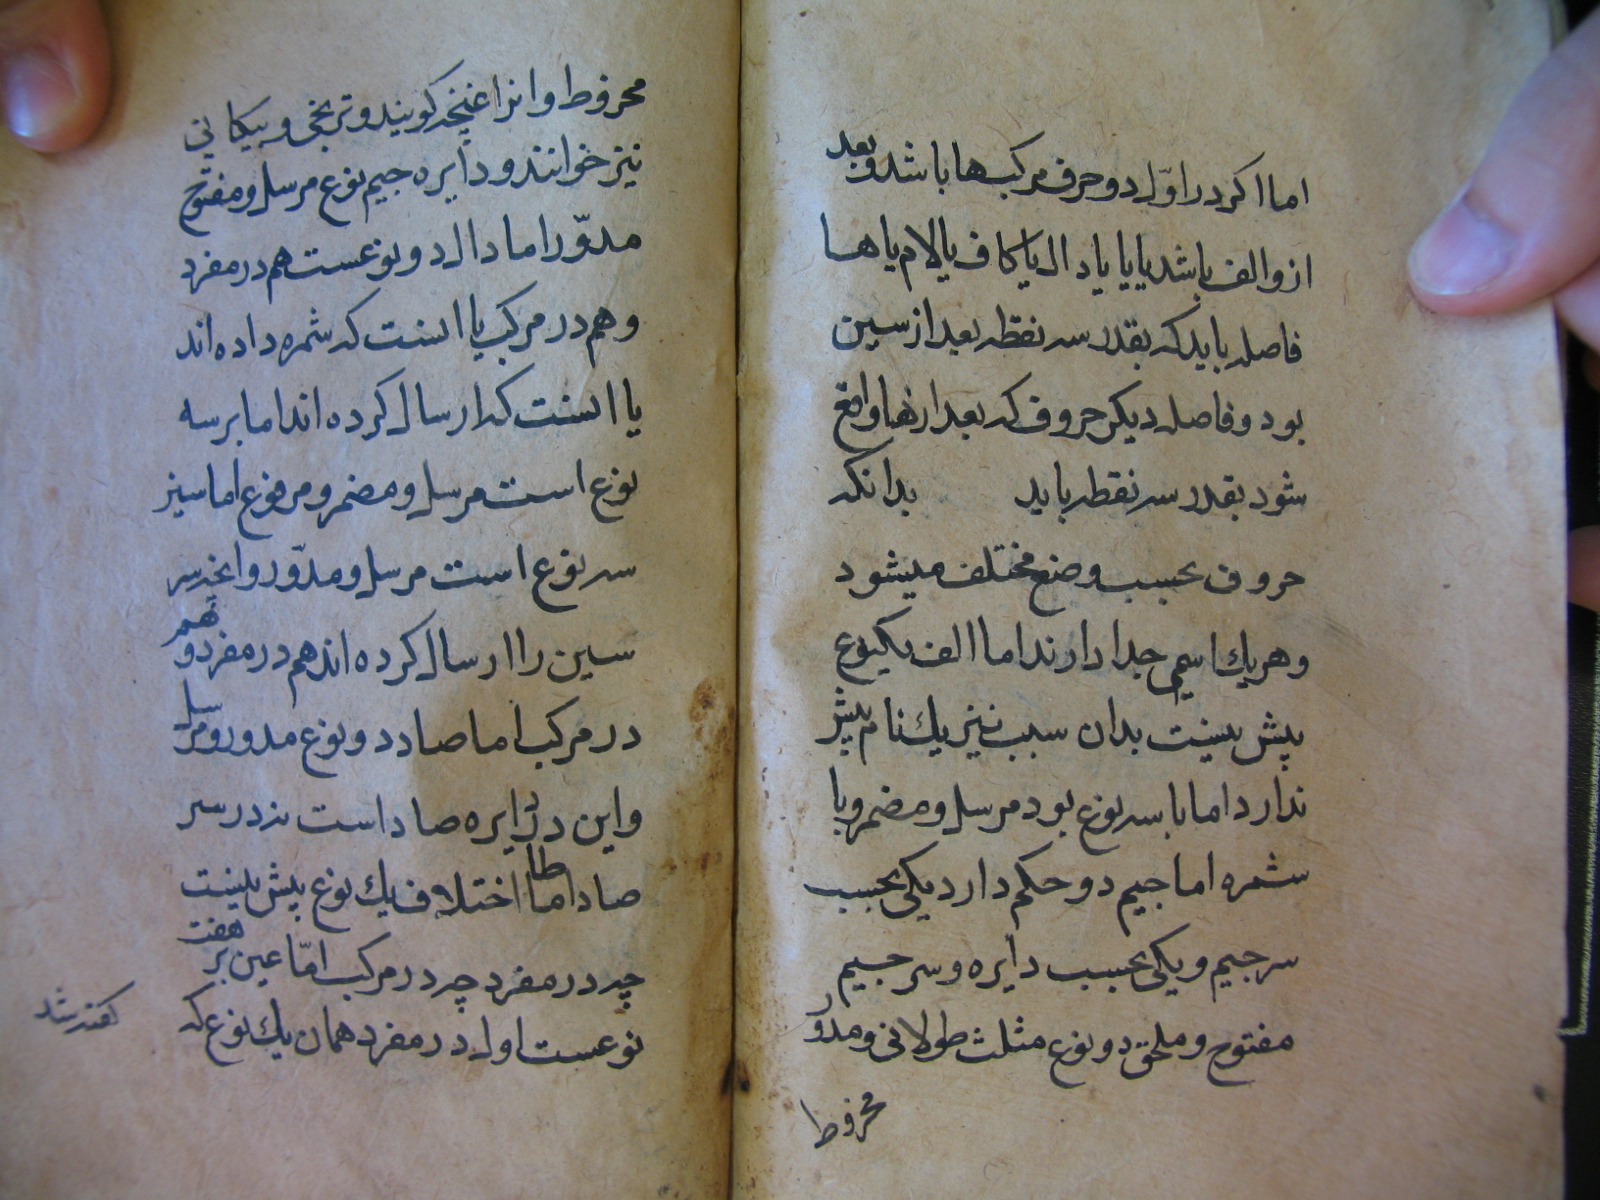 اما اکر در اوّل دو حرف مرکب ها باشد و بعد
ازو الف باشد یا یا یا دال یا کاف یا لام یا ها
فاصله باید که بقدر سه نقطه بعد از سین
بود و فاصله دیکر حروف که بعد ازنها واقع
شود بقدر سه نقطه باید بدانکه
حروف بحسب وضع مختلف میشود
و هر یك اسم جدا دارند اما الف یکنوع
پیش نیست بدان سبب نیز یك نام بیش
ندارد اما با سه نوع بود مرسل و مضمر و با
شمره اما جیم دو حکم دارد یکی بحسب
سر جیم و یکی بحسب دایره و سر جیم
مفتوح و ملحق دو نوع مثلث طولانی و مدوّر
مخروط
مخروط و انرا غنچه کویند و ترنجی و پیکانی
نیز خوانند و دایره جیم نوع مرسل و مفتوح
مدوّر اما دال دو نوعست هم در مفرد
و هم در مرکب یا انست که شمره داده اند
یا انست که ارسال کرده اند اما بر سه
نوع است مرسل و مضمر و مرفوع اما سین
سه نوع است مرسل و مدوّر و انچه سر
سین را ارسال کرده اند هم در مفرد و هم
در مرکب اما صاد دو نوع مدور و مرسل
و این در دایره صاد است نه در سر
صاد اما طا اختلاف یك نوع بیش نیست
چه در مفرد چه در مرکب امّا عین بر هفت
نوعست اول در مفرد همان یك نوع که
کفته شد